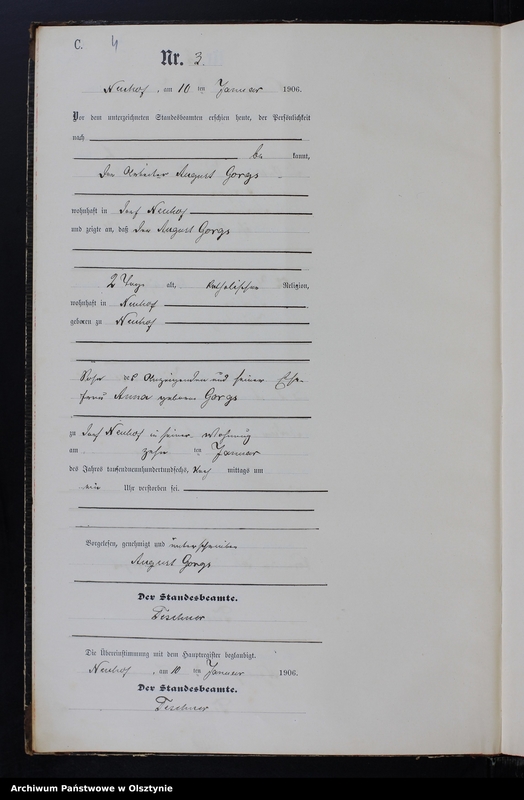 C. 4
Nr. 3.
Neuhof, am 10 ten Januar 1906.
Vor dem unterzeichneten Standesbeamten erschien heute, der Persönlichkeit
nach
be kannt,
der Arbeiter August Gorgs
wohnhaft in Dorf Neuhof
und zeigte an, daß der August Gorgs
2 Tage alt, katholischer Religion,
wohnhaft in Neuhof
geboren zu Neuhof
Sohn des Anzeigenden und seiner Ehe-
frau Anna geborn Gorgs
zu Dorf Neuhof in seiner Wohnung
am zehn ten Januar
des Jahres tausendneunhundertundsechs, Nach mittags um
ein Uhr verstorben sei.
Vorgelesen, genehmigt und unterschrieben
August Gorgs
Der Standesbeamte.
Tischner
Die Übereinstimmung mit dem Hauptregister beglaubigt.
Neuhof, am 10 ten Januar 1906.
Der Standesbeamte.
Tischner
Archiwum Państwowe w Olsztynie